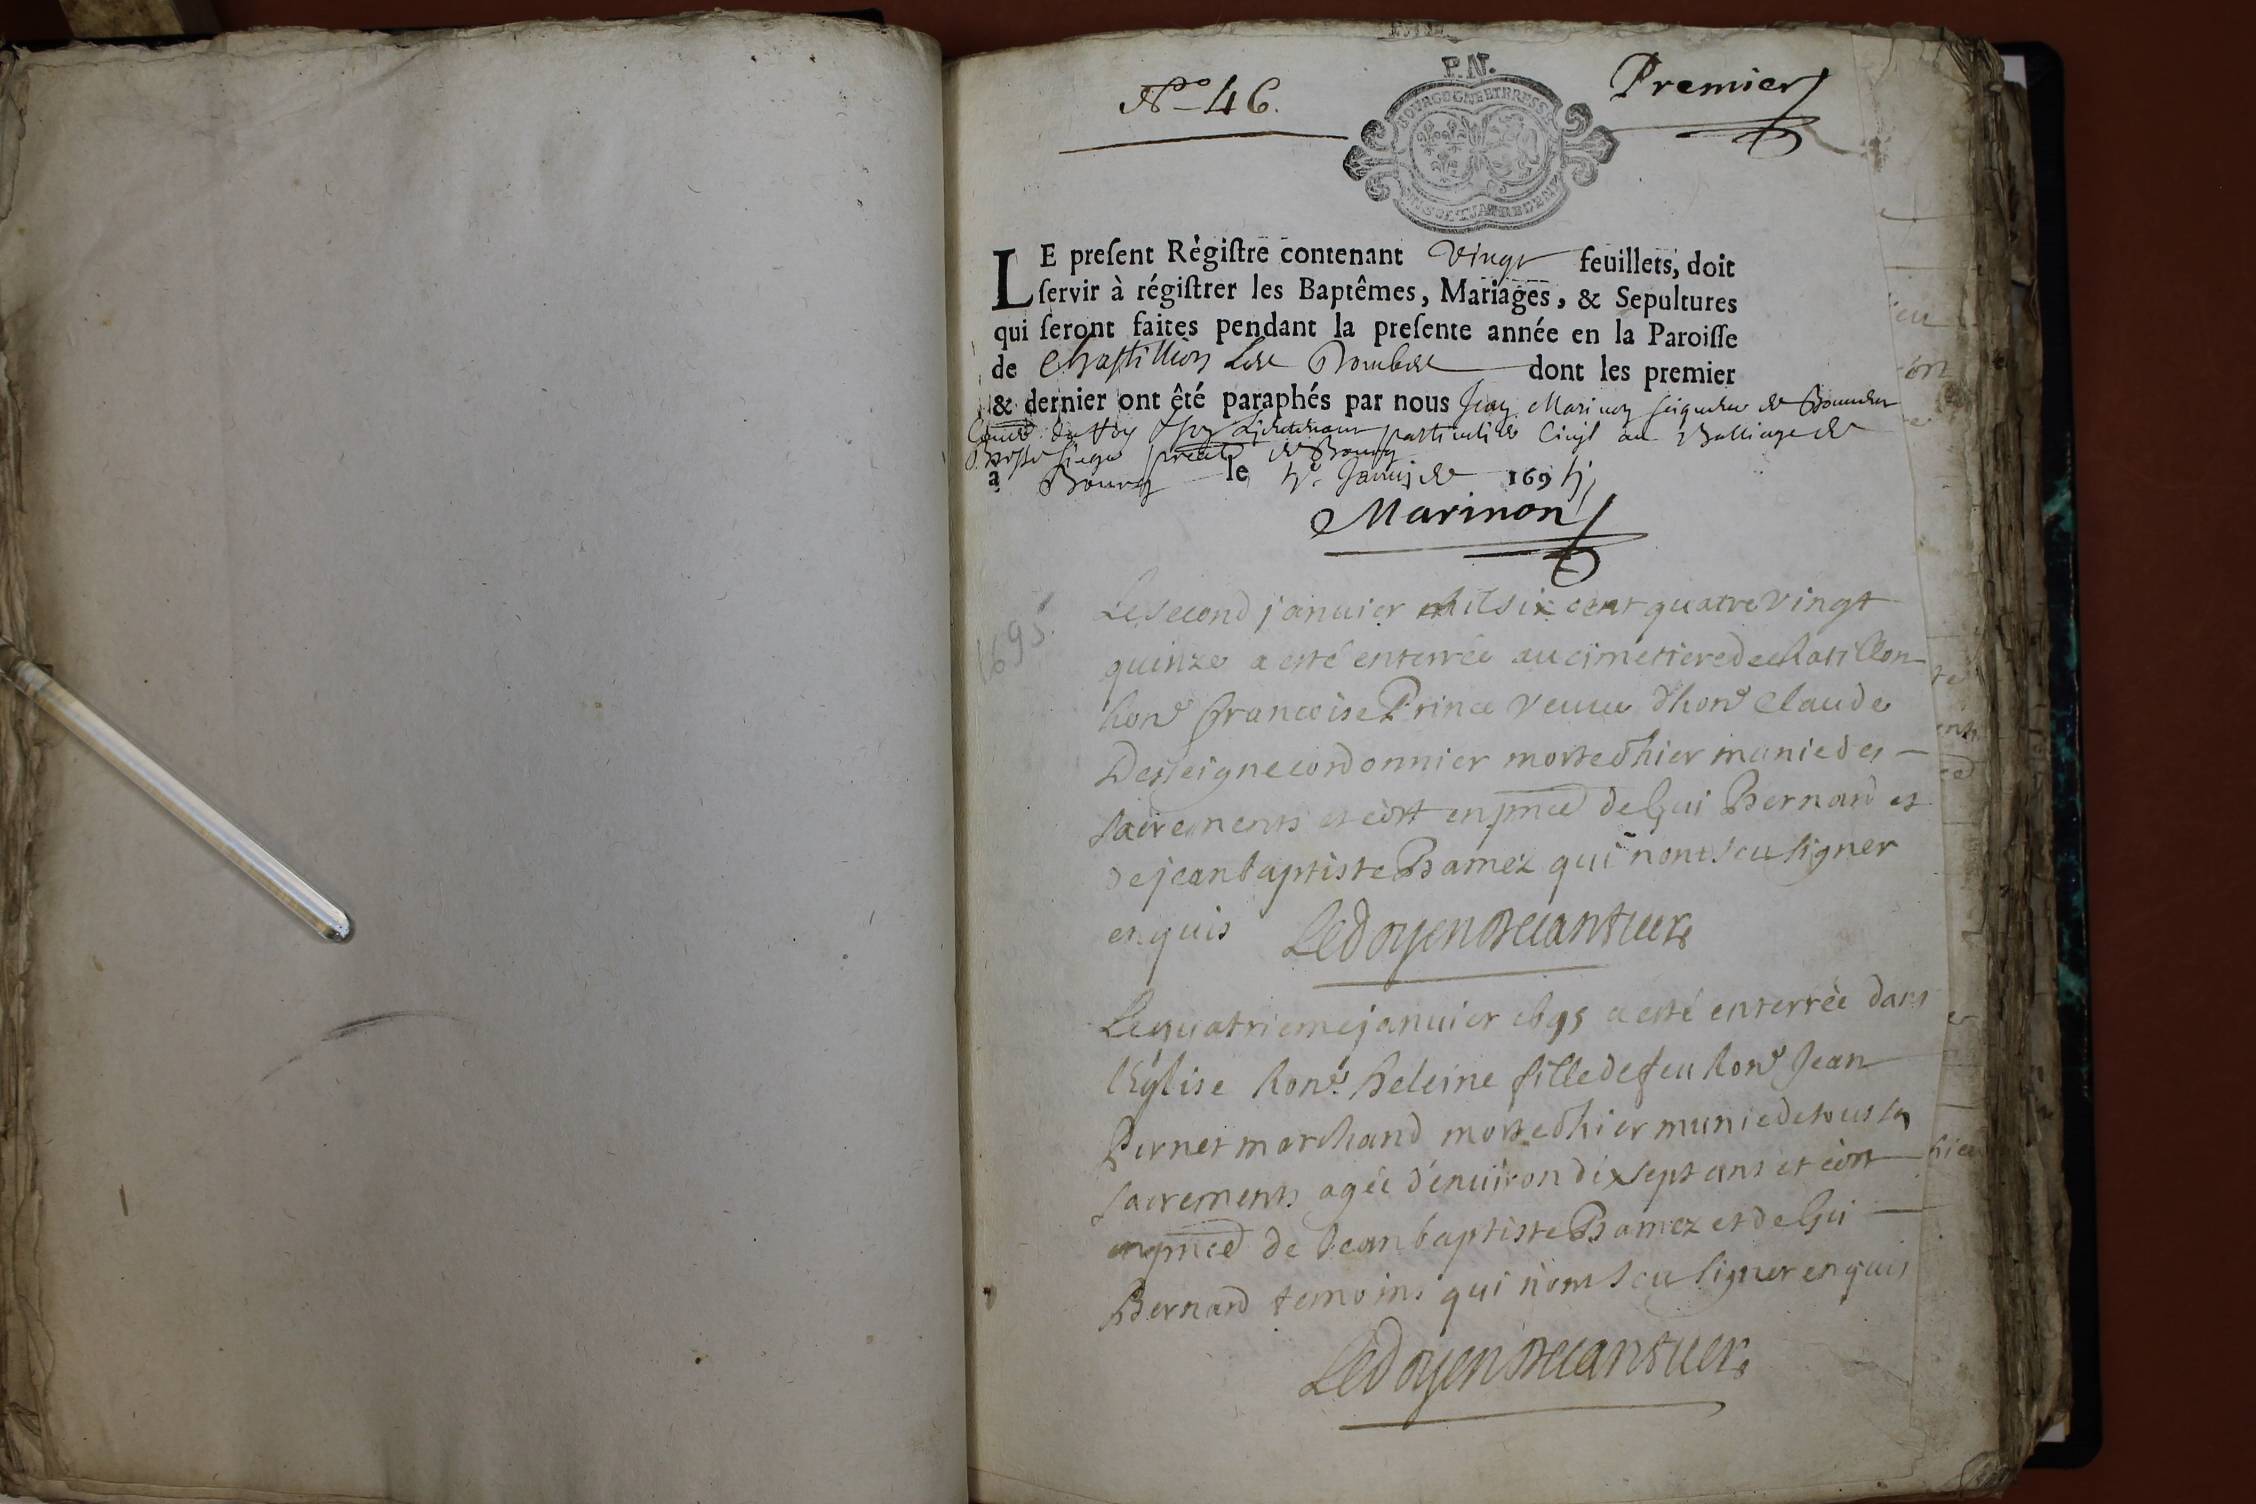 P.N.
No 46.
Premier
BOURGOGNE ET BRESSE
LE preſent Régiſtre contenant vingt feuillets, doit
ſervir à régiſtrer les Baptêmes, Mariages, & Sepultures
qui ſeront faites pendant la preſente année en la Paroiſſe
de Chastillion Les Dombes dont les premier
& dernier ont êté paraphés par nous Jean Marinon seigneur de
du Roy Lieutenant particulier Civil au Balliage de
Bresse siege de Bourg
à Bourg le Janvier 169
Marinon
1695
Le second januier mil six cent quatre vingt
quinze a esté enterrée au cimetiere de chatillon
hone francoise Prince veuue d'hone Claude
Desseigne cordonnier morte d'hier munie des
sacremens et cert en pnce de Gui Bernard et
de jean baptiste Bamez qui n'ont sceu signer
enquis Le doyen Decantuer
Le quatrieme januier 1695 a esté enterrée dans
l'Eglise hone heleine fille de feu hone Jean
Pernet marchand morte d'hier munie de tous les
sacremens agée d'enuiron dix sept ans et cert
en pnce de Jean baptiste Bamez et de Gui
Bernard temoins qui n'ont sceu signer enquis
Le doyen Decantuer